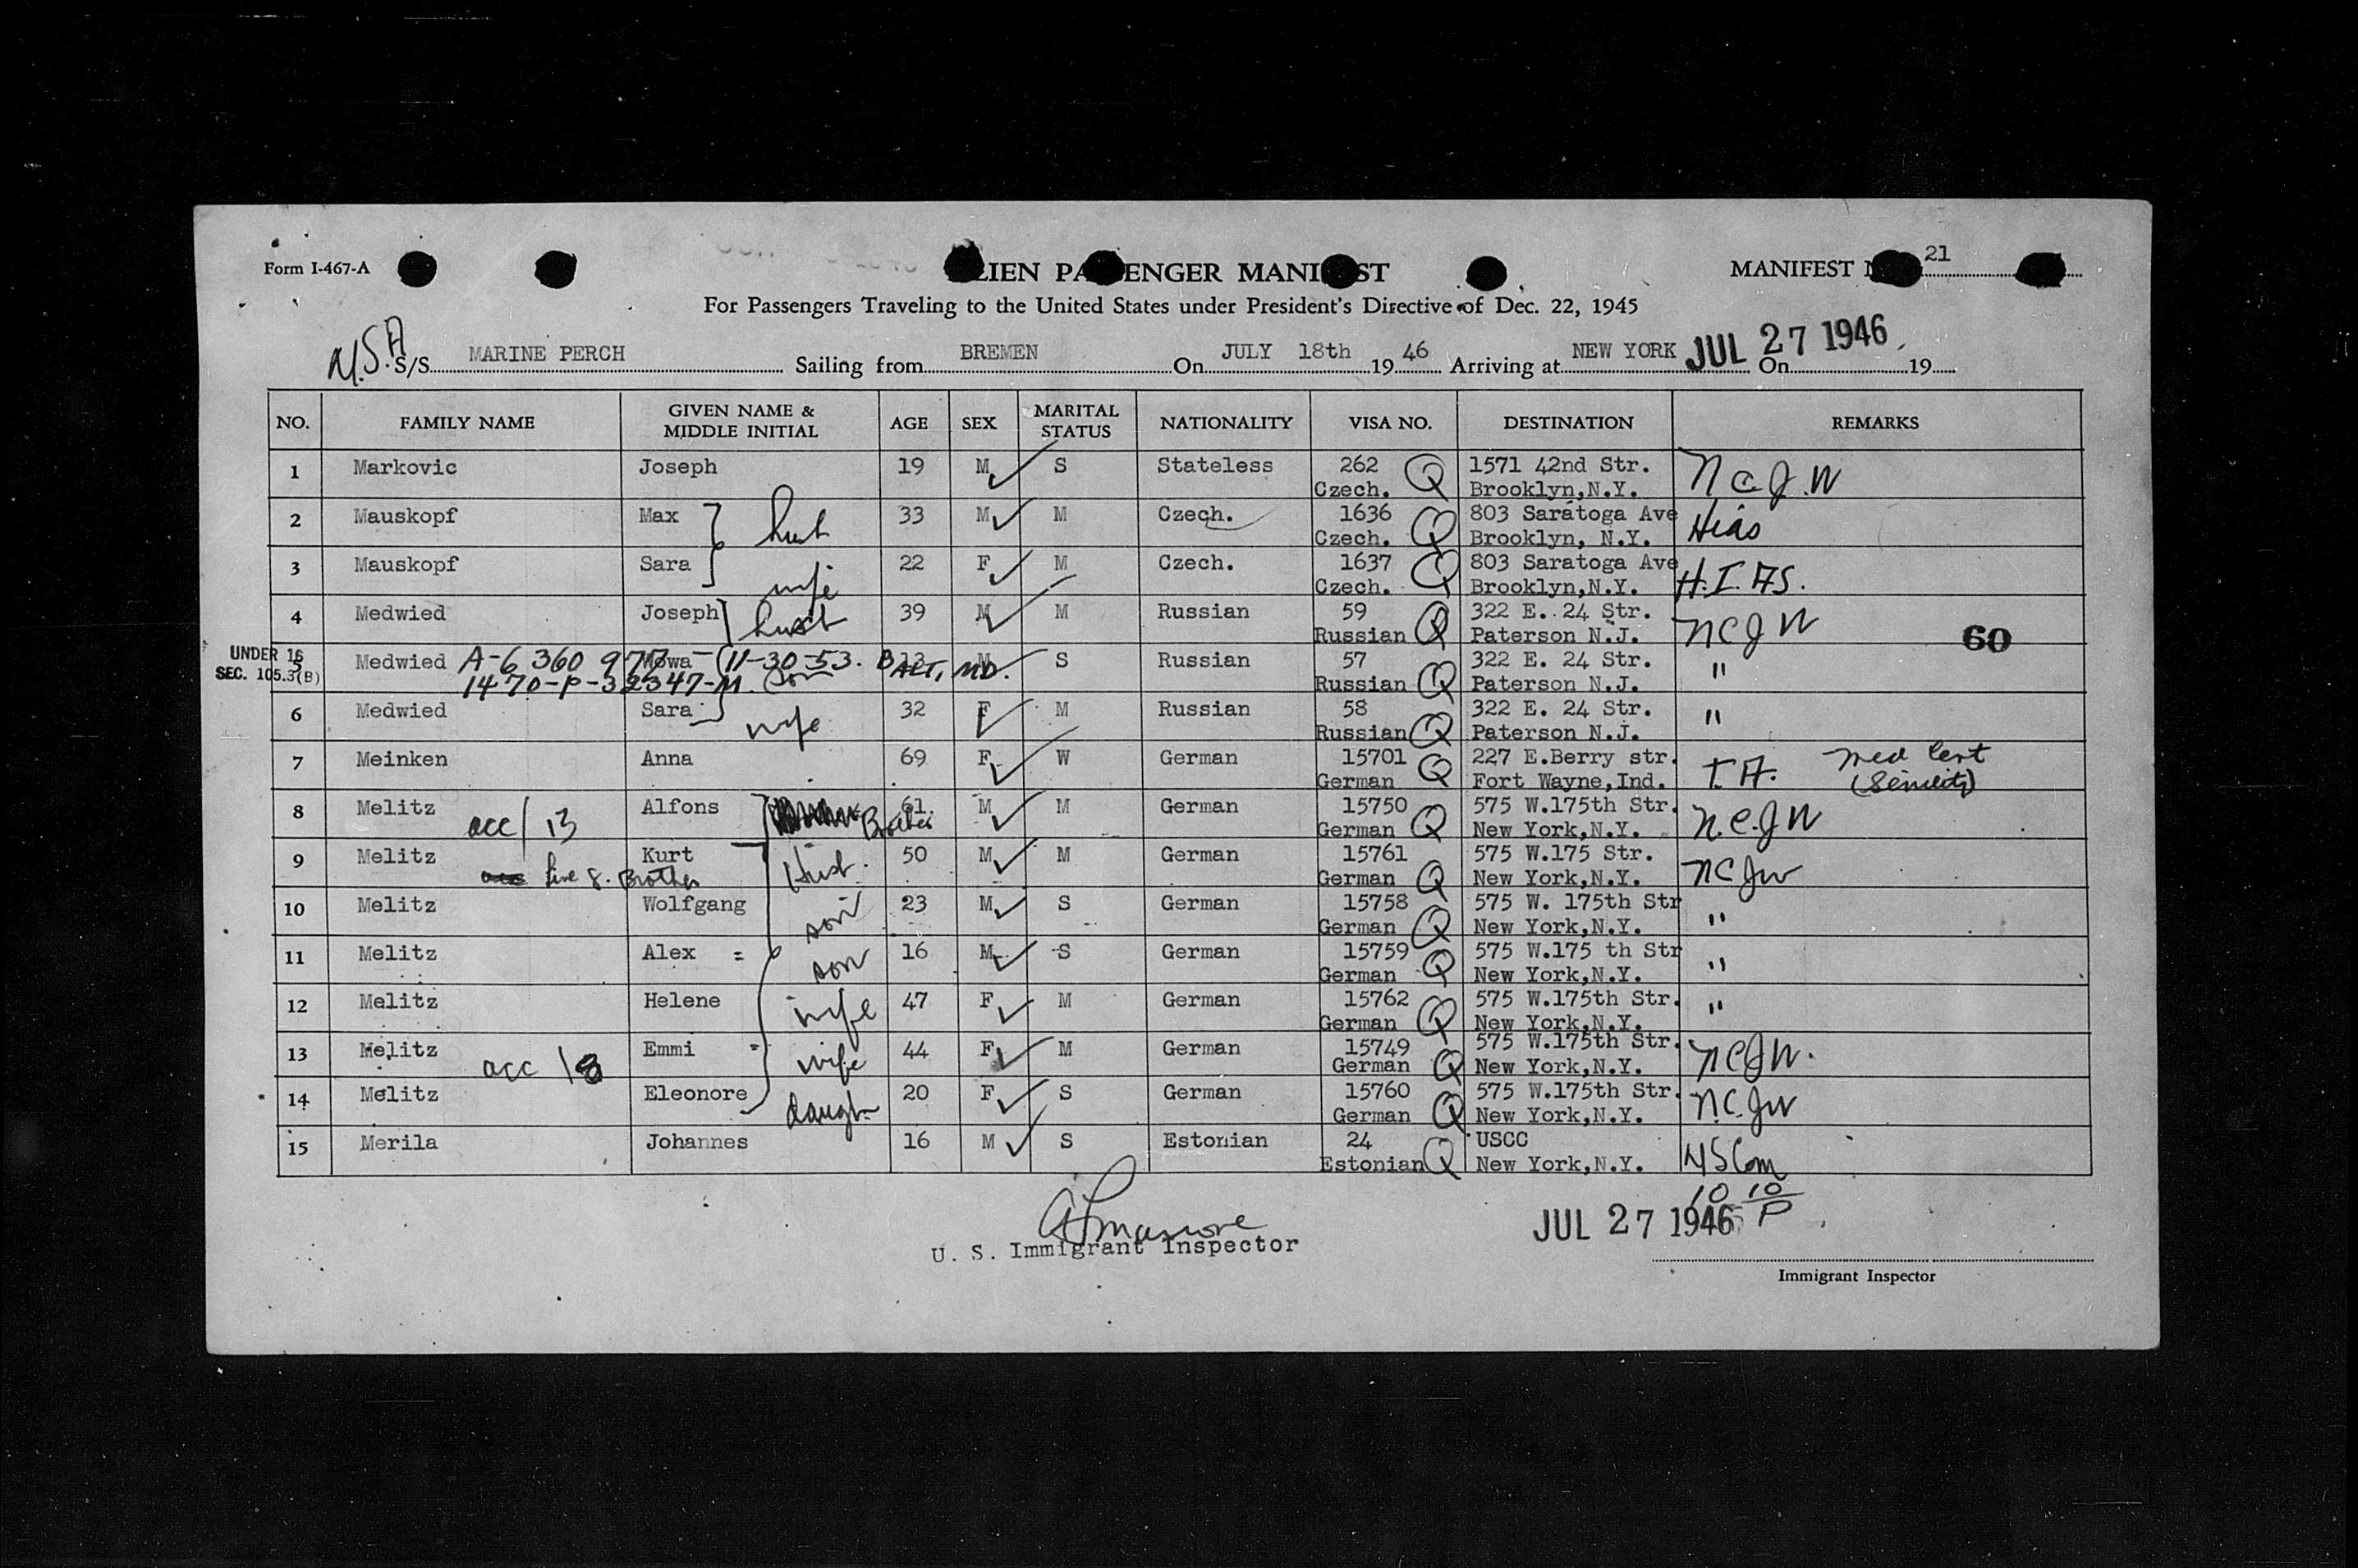 Form I-467-A
ALIEN PASSENGER MANIFEST
MANIFEST 21
For Passengers Traveling to the United States under President's Directive of Dec. 22, 1945
U.S.A S/S MARINE PERCH Sailing from BREMEN On JULY 18th 19 46 Arriving at NEW YORK JUL 27 1946 On 19
NO. FAMILY NAME GIVEN NAME & MIDDLE INITIAL AGE SEX MARITAL STATUS NATIONALITY VISA NO. DESTINATION REMARKS
1 Markovic Joseph 19 M S Stateless 262 Q 1571 42nd Str. N C J W
Czech. Brooklyn,N.Y.
2 Mauskopf Max Husb 33 M M Czech. 1636 Q 803 Saratoga Ave Hias
Czech. Brooklyn, N.Y.
3 Mauskopf Sara wife 22 F M Czech. 1637 Q 803 Saratoga Ave H.I.AS.
Czech. Brooklyn,N.Y.
4 Medwied Joseph 39 M M Russian 59 Q 322 E. 24 Str. N C J W
Russian Paterson N.J.
60
UNDER 16
SEC. 105.3(B)
5 Medwied A-6 360 977 Mowa (11-30-53. BALT, MD. 13 M S Russian 57 Q 322 E. 24 Str. "
1470-P-32347-M. Son Russian Paterson N.J.
6 Medwied Sara wife 32 F M Russian 58 Q 322 E. 24 Str. "
Russian Paterson N.J.
7 Meinken Anna 69 F W German 15701 Q 227 E.Berry str. T.A. Med Cert
German Fort Wayne,Ind. (Senility)
8 Melitz acc/13 Alfons Brother 61 M M German 15750 Q 575 W.175th Str. N.C.J W
German New York,N.Y.
9 Melitz Kurt Husb. 50 M M German 15761 Q 575 W.175 Str. NCJW
line 8. Brother German New York,N.Y.
10 Melitz Wolfgang son 23 M S German 15758 Q 575 W. 175th Str "
German New York,N.Y.
11 Melitz Alex = son 16 M S German 15759 Q 575 W.175 th Str "
German New York,N.Y.
12 Melitz Helene wife 47 F M German 15762 Q 575 W.175th Str. "
German New York,N.Y.
13 Melitz acc 18 Emmi wife 44 F M German 15749 Q 575 W.175th Str. NCJW.
German New York,N.Y.
14 Melitz Eleonore daught 20 F S German 15760 Q 575 W.175th Str. N.C.JW
German New York,N.Y.
15 Merila Johannes 16 M S Estonian 24 Q USCC USCom
Estonian New York,N.Y.
10 10/P
JUL 27 1946
U. S. Immigrant Inspector
Immigrant Inspector